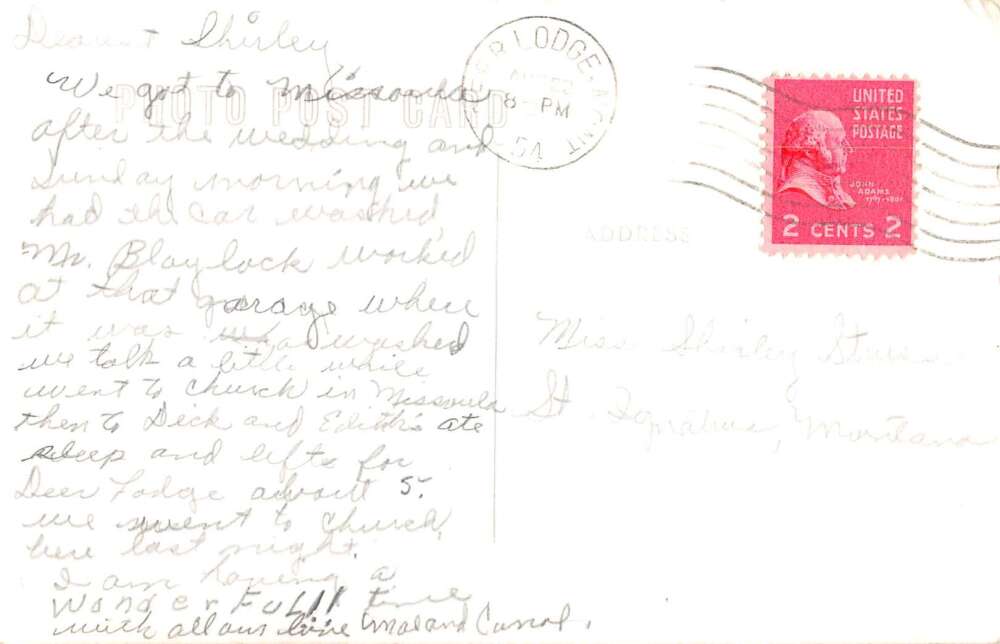 Dearest Shirley
We got to Missoula
after the wedding and
Sunday morning we
had the car washed,
Mr. Blaylock worked
at that garage when
it was washed
we talk a little while
went to church in Missoula
then to Dick and Edith's ate
sleep and lefts for
Deer Lodge about 5.
we went to church
here last night.
I am having a
Wonderfull time
with all our love Mac and Carol.
PHOTO POST CARD
DEER LODGE, MONT
8 - PM
54
UNITED
STATES
POSTAGE
JOHN
ADAMS
1797-1801
2 CENTS 2
ADDRESS
Miss Shirley
St. Ignatius, Montana